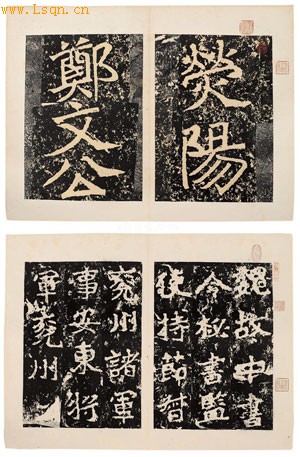 www.Lsqn.cn
熒陽
鄭文公
魏故中書
令秘書監
使持節督
兗州諸軍
事安東將
軍兗州